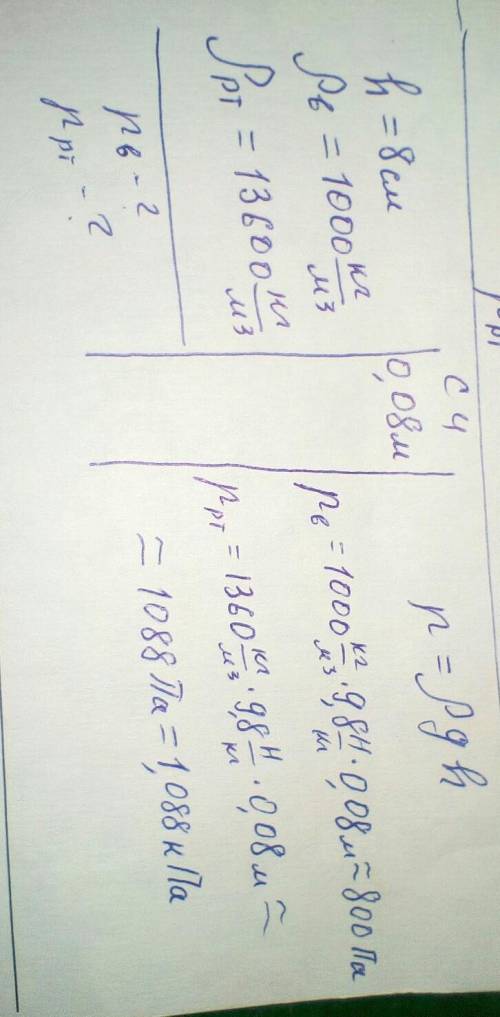 h = 8 см
ρв = 1000 кг/м3
ρрт = 13600 кг/м3
pв - ?
pрт - ?
СИ
0,08 м
p = ρgh
pв = 1000 кг/м3 · 9,8 Н/кг · 0,08 м ≈ 800 Па
pрт = 1360 кг/м3 · 9,8 Н/кг · 0,08 м ≈
≈ 1088 Па = 1,088 кПа